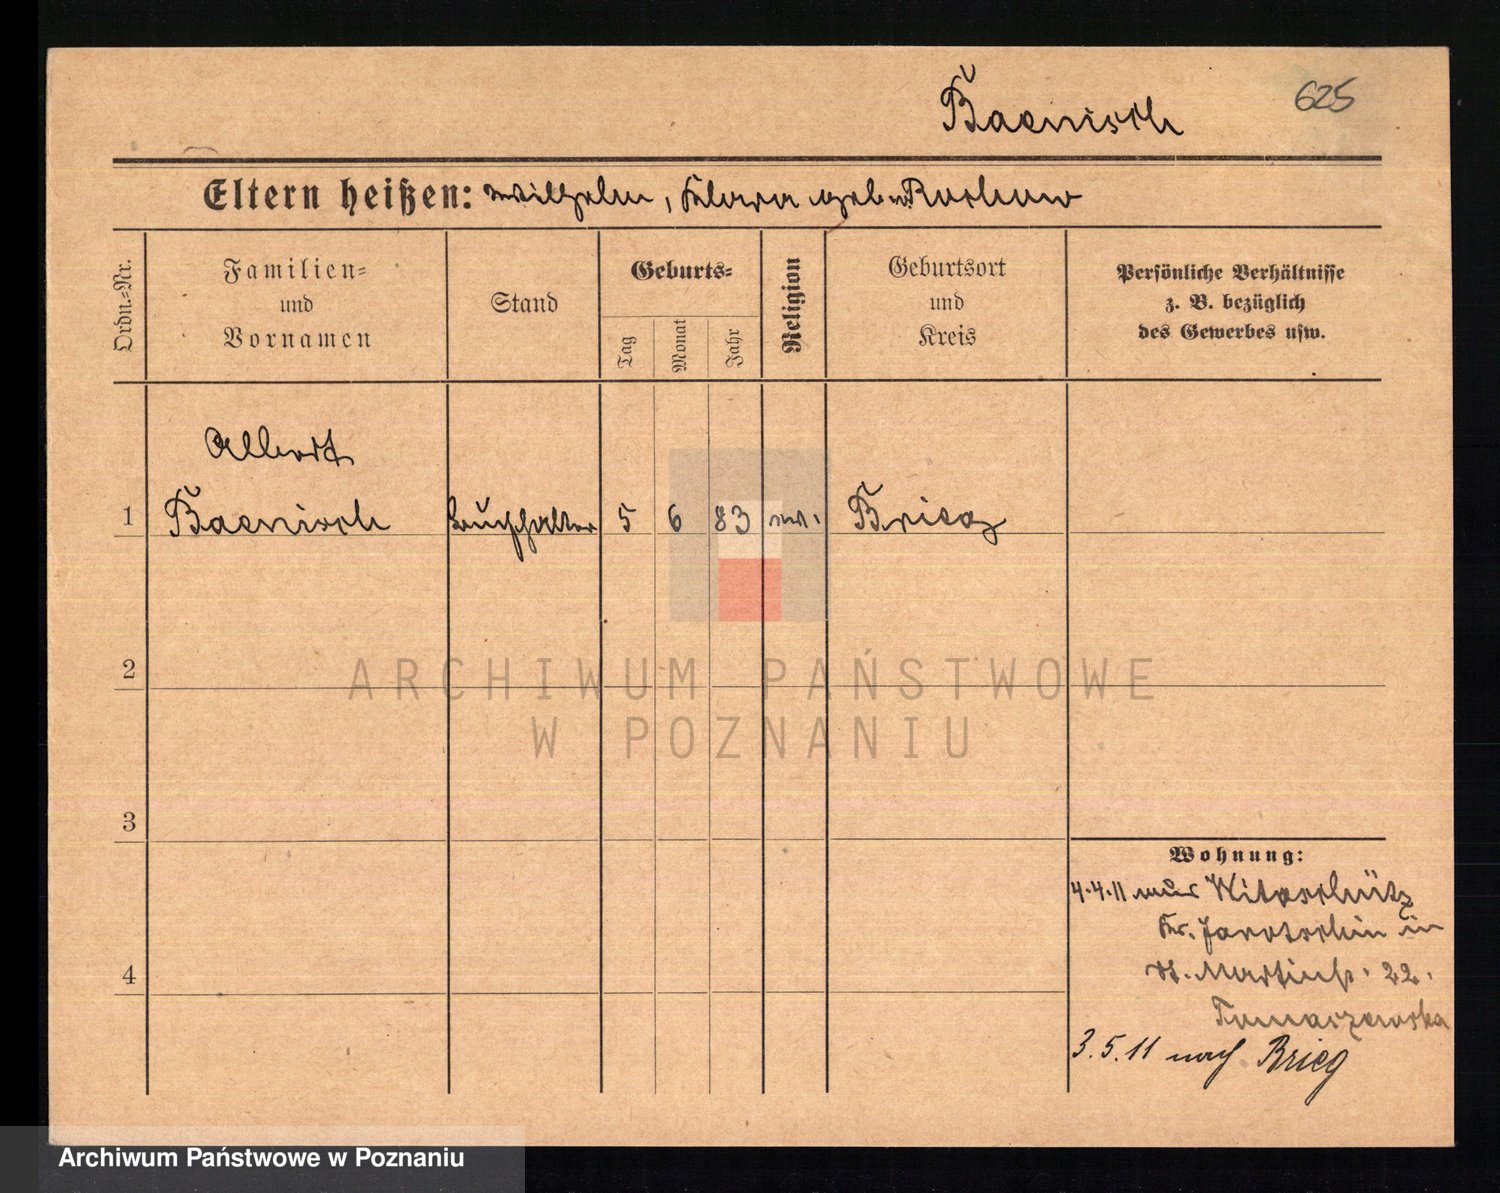 Baenisch
625
Eltern heißen: Wilhelm, Klara geb.
Ordn.-Nr.
Familien-
und
Vornamen
Stand
Geburts-
Tag
Monat
Jahr
Religion
Geburtsort
und
Kreis
Persönliche Verhältnisse
z. B. bezüglich
des Gewerbes usw.
Albert
1 Baenisch Buchhalter 5 6 83 ev. Brieg
2
3
4
ARCHIWUM PAŃSTWOWE
W POZNANIU
Wohnung:
4.4.11 aus Witaschütz
Kr. Jarotschin in
St. Martinstr. 22.
Tomaszewska
3.5.11 nach Brieg
Archiwum Państwowe w Poznaniu